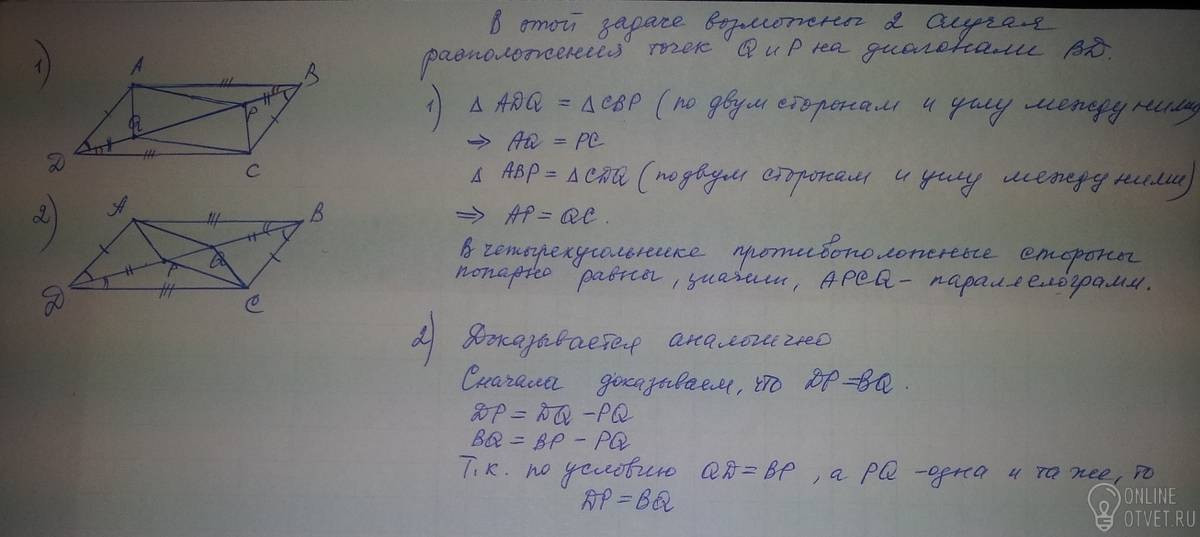 В этой задаче возможны 2 случая
расположения точек Q и P на диагонали BD.
1)
A
B
Q
P
D
C
1) Δ ADQ = Δ CBP (по двум сторонам и углу между ними)
⇒ AQ = PC
Δ ABP = Δ CDQ (по двум сторонам и углу между ними)
⇒ AP = QC.
В четырехугольнике противоположные стороны
попарно равны, значит, APCQ – параллелограмм.
2)
A
B
P
Q
D
C
2) Доказывается аналогично
Сначала доказываем, что DP = BQ.
DP = DQ – PQ
BQ = BP – PQ
Т.к. по условию QD = BP, а PQ – одна и та же, то
DP = BQ
ONLINE
OTVET.RU